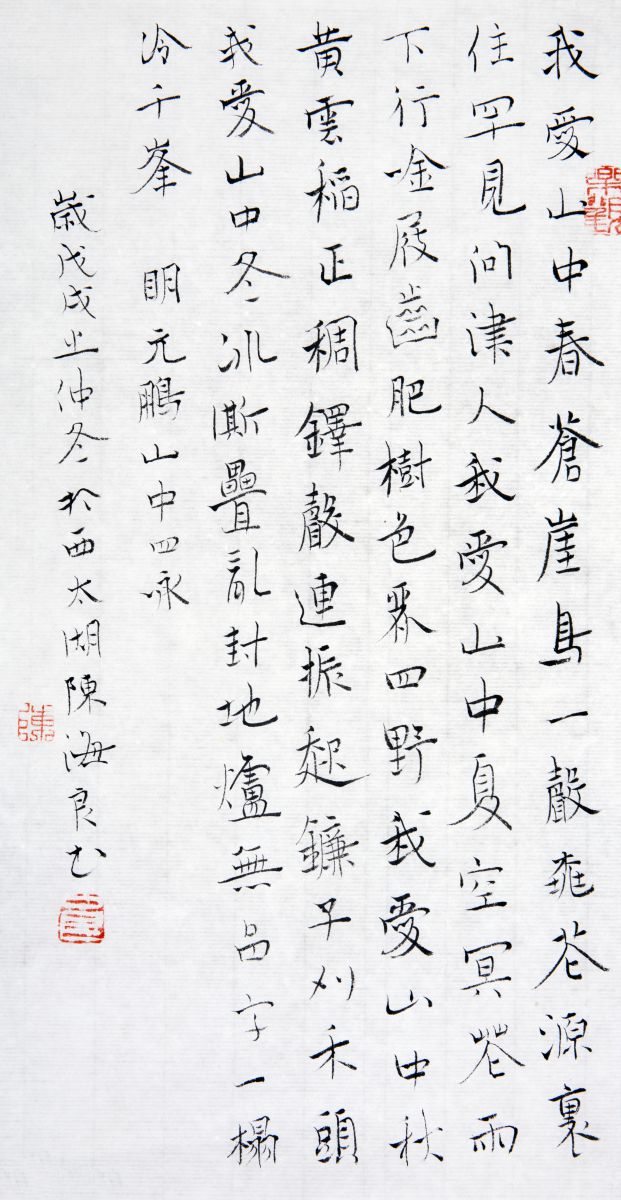 我愛山中春蒼崖鳥一聲桃花源裏
住罕見問津人我愛山中夏空冥花雨
下行唫屐齒肥樹色四野我愛山中秋
黃雲稻正稠鐸聲連振起鐮子刈禾頭
我愛山中冬冰澌疊亂封地爐無品字一榻
冷千峯 明元鵬山中四咏
歲戊戌之仲冬於西太湖陳海良書